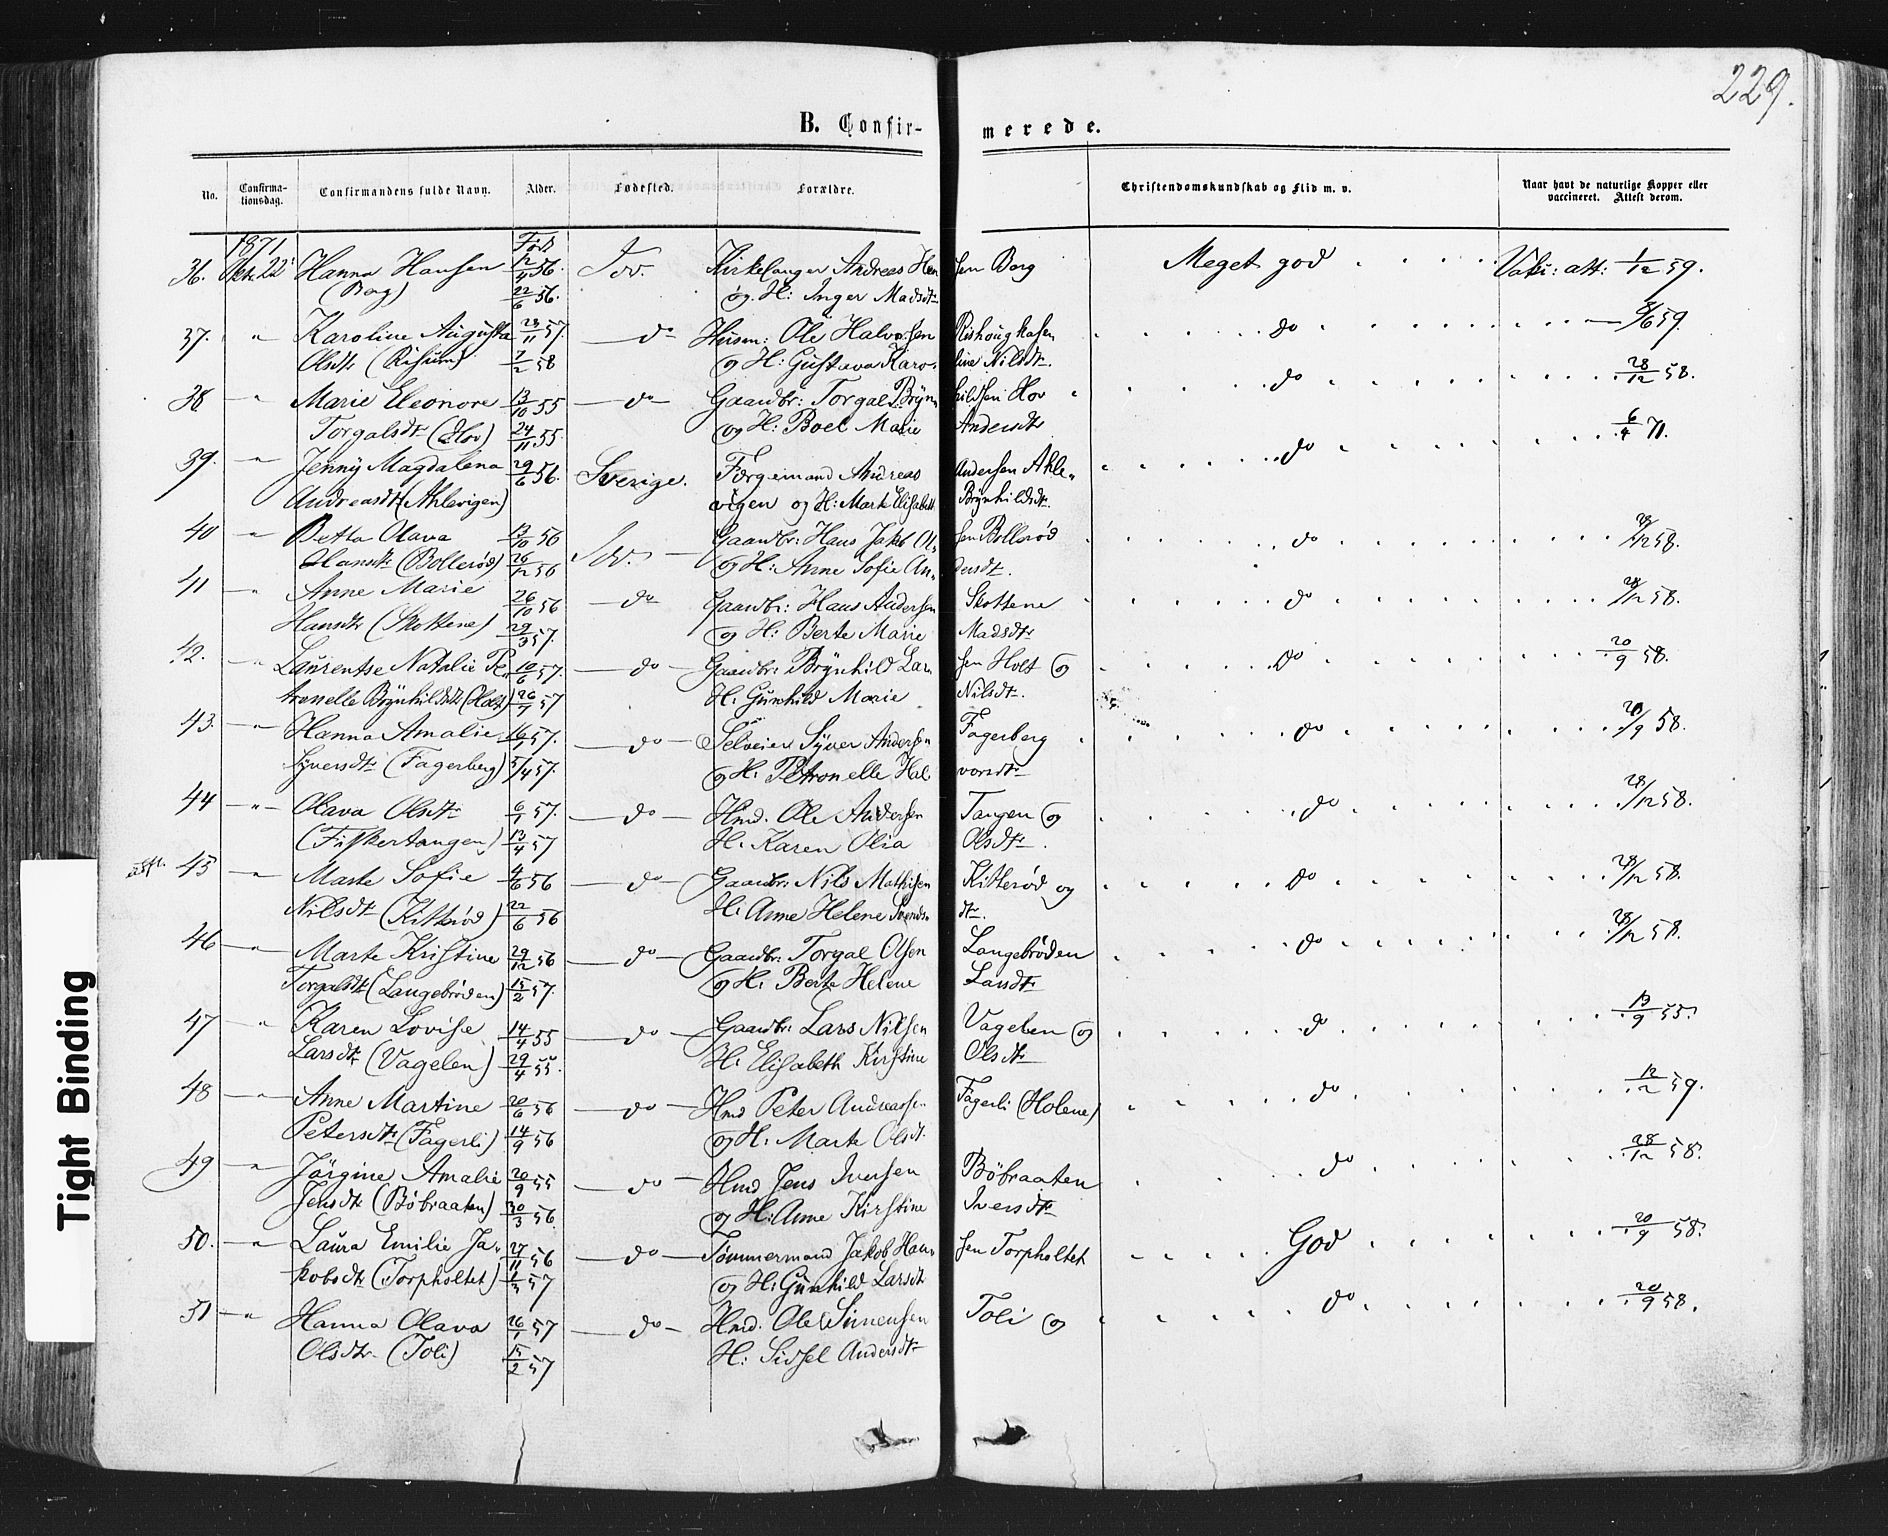 229.
B. Confirmerede.
No. Confirmationsdag. Confirmandens fulde Navn. Alder. Fødested. Forældre. Christendomskundskab og Flid m. v. Naar havt de naturlige Kopper eller vaccineret. Attest derom.
1871 Født
36. Okt. 22 Hanna Hansen 12/4 56. Idd. Kirkesanger Andreas Hansen Borg Meget god Vaks: att: 1/12 59.
(Borg) 22/6 56. og H: Inger Madsdtr
37. " Karoline Augusta 23/11 57. do Husm: Ole Halvorsen Rishoughasen do 8/6 59.
Olsdtr (Risum) 7/2 58 og H: Gustava Karoline Nilsdtr.
38 " Marie Eleonore 13/10 55 do Gaardbr: Torgal Brynhildsen Hov do 28/12 58.
Torgalsdtr (Hov) 24/11 55. og H: Boel Marie Andersdtr
39. " Jenny Magdalena 29/6 56. Sverige. Færgemand Andreas Andersen Ahle- do 6/4 71.
Andreasdtr (Ahlevigen) vigen og H: Marte Elisabeth Brynhildsdtr.
40 " Betta Olava 13/10 56 Idd. Gaardbr: Hans Jakob Olsen Bollerød do 28/12 58.
Hansdtr (Bollerød) 26/12 56 og H: Anne Sofie Andersdtr.
41 " Anne Marie 26/10 56 do Gaardbr: Hans Andersen Skottene do 28/12 58.
Hansdtr (Skottene) 29/3 57. og H: Berte Marie Madsdtr
42. " Laurentse Natalie Pe- 10/6 57. do Gaardbr: Brynhild Larsen Holt og do 20/9 58.
tronelle Brynhildsdtr (Holt) 26/7 57 H: Gunhild Marie Nilsdtr.
43. " Hanna Amalie 16/1 57. do Selveier Syver Andersen Fagerberg do 20/9 58.
Syversdtr (Fagerberg) 5/4 57. og H: Petronelle Halvorsdtr
44 " Olava Olsdtr 6/1 57. do Hmd. Ole Andersen Tangen og do 28/12 58.
(Fiskertangen) 13/4 57 H: Karen Olia Olsdtr.
45 " Marte Sofie 4/6 56 do Gaardbr: Nils Mathisen Kitterød og do 28/12 58.
Nilsdtr (Kitterød) 22/6 56 H: Anne Helene Svendsdtr.
46 " Marte Kristine 29/12 56 do Gaardbr: Torgal Olsen Langebrøden do 28/12 58.
Torgalsdtr (Langebrøden) 15/2 57. og H: Berte Helene Larsdtr
47 " Karen Lovise 14/4 55 do Gaardbr: Lars Nilsen Vagelen og do 13/9 55.
Larsdtr (Vagelen) 29/4 55. H: Elisabeth Kirstine Olsdtr
48 " Anne Martine 20/6 56 do Hmd Peter Andreassen Fagerli (Holene) do 12/12 59.
Petersdtr (Fagerli) 14/9 56 og H: Marte Olsdt.
49 " Jørgine Amalie 20/9 55 do Hmd Jens Iversen Böbraaten do 28/12 58.
Jensdtr (Böbraaten) 30/3 56. og H: Anne Kirstine Iversdtr
50. " Laura Emilie Ja- 27/11 56 do Tømmermand Jakob Hansen Torpholtet God 20/9 58.
kobsdtr (Torpholtet) 1/3 57 og H: Gunhild Larsdtr
51 " Hanna Olava 26/1 57 do Hmd. Ole Simensen Toli og do 20/9 58.
Olsdtr (Toli) 15/2 57 H: Sidsel Andersdtr
Tight Binding